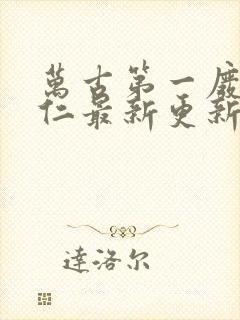 萬古第一廢
仁最新更新
達洛尔